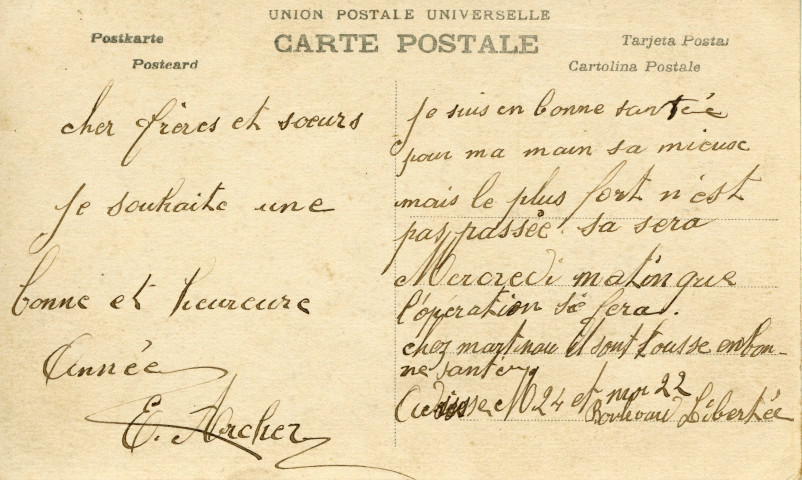 UNION POSTALE UNIVERSELLE
Postkarte
CARTE POSTALE
Tarjeta Postal
Postcard
Cartolina Postale
cher frères et sœurs
Je souhaite une
bonne et heureure
Année
E. Archer
Je suis en bonne santée
pour ma main sa mieuse
mais le plus fort n'est
pas passée. sa sera
Mercredi matin que
l'opération se fera.
chez martinau il sont tousse en bon-
ne santer
Adresse M 24 et moi 22
Boulevard Libertée